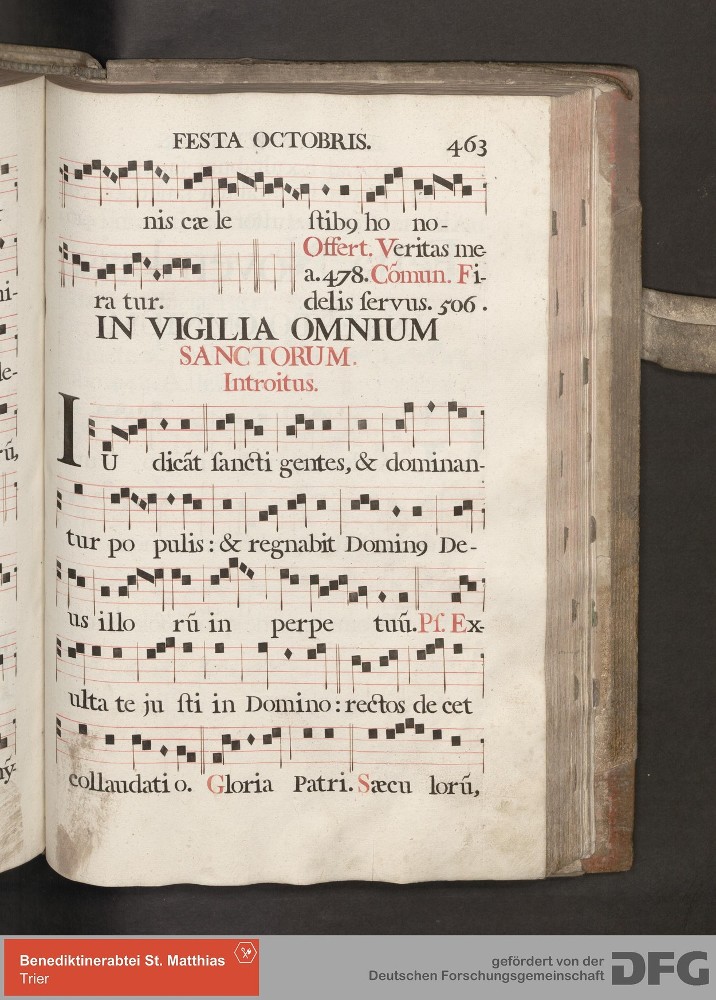 FESTA OCTOBRIS. 463
nis cæ le ſtibꝯ ho no-
Offert. Veritas me-
a. 478. Cõmun. Fi-
ra tur. delis ſervus. 506.
IN VIGILIA OMNIUM
SANCTORUM.
Introitus.
IU dicãt ſancti gentes, & dominan-
tur po pulis: & regnabit Dominꝯ De-
us illo rũ in perpe tuũ. Pſ. Ex-
ulta te ju ſti in Domino: rectos de cet
collaudati o. Gloria Patri. Sæcu lorũ,
ni-
le-
rũ,
Benediktinerabtei St. Matthias
Trier
gefördert von der
Deutschen Forschungsgemeinschaft DFG